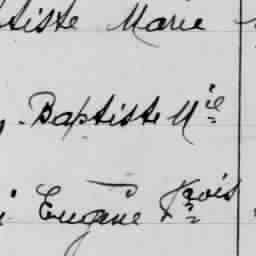 tiste Marie
. Baptiste Mie
i Eugène Frçois